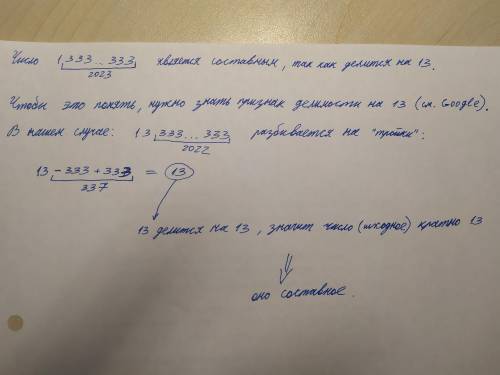 Число 1 333 ... 333 является составным, так как делится на 13.
2023
Чтобы это понять, нужно знать признак делимости на 13 (см. Google).
В нашем случае: 13 333 ... 333 разбивается на "тройки":
2022
13 - 333 + 333 = 13
337
13 делится на 13, значит число (исходное) кратно 13
⇓
оно составное.